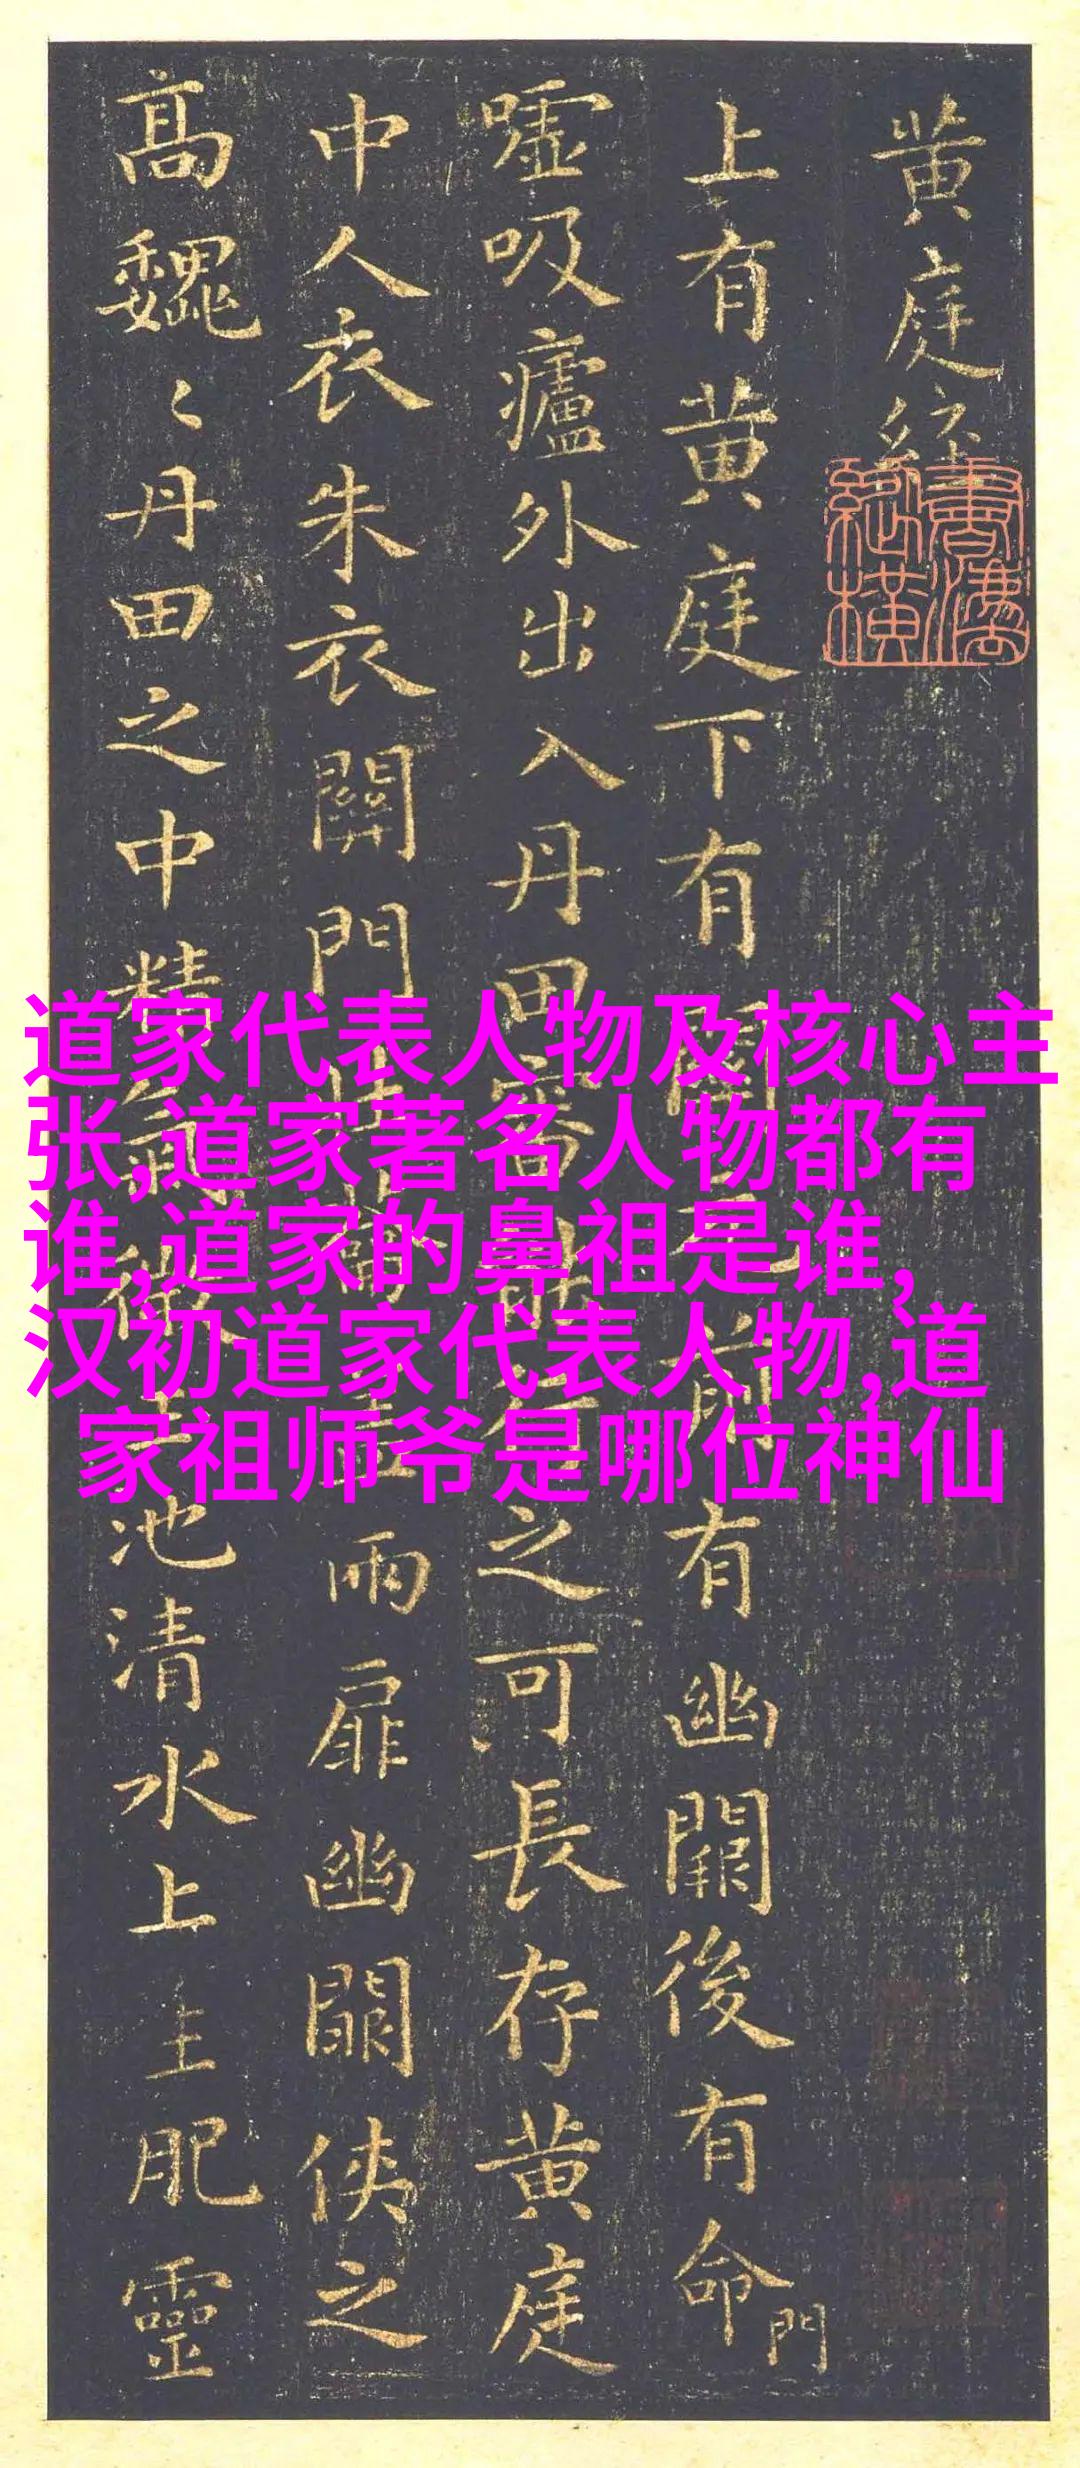 黄庭经
上有黄庭下有關元前有幽闕後有命門
嘘吸廬外出入丹田審能行之可長存黄庭
中人衣朱衣關門壮蘥蓋兩扉幽闕侠之
高魏〻丹田之中精氣微玉池清水上生肥靈
書漢縱橫
道家代表人物及核心主
张,道家著名人物都有
谁,道家的鼻祖是谁,
汉初道家代表人物,道
家祖师爷是哪位神仙